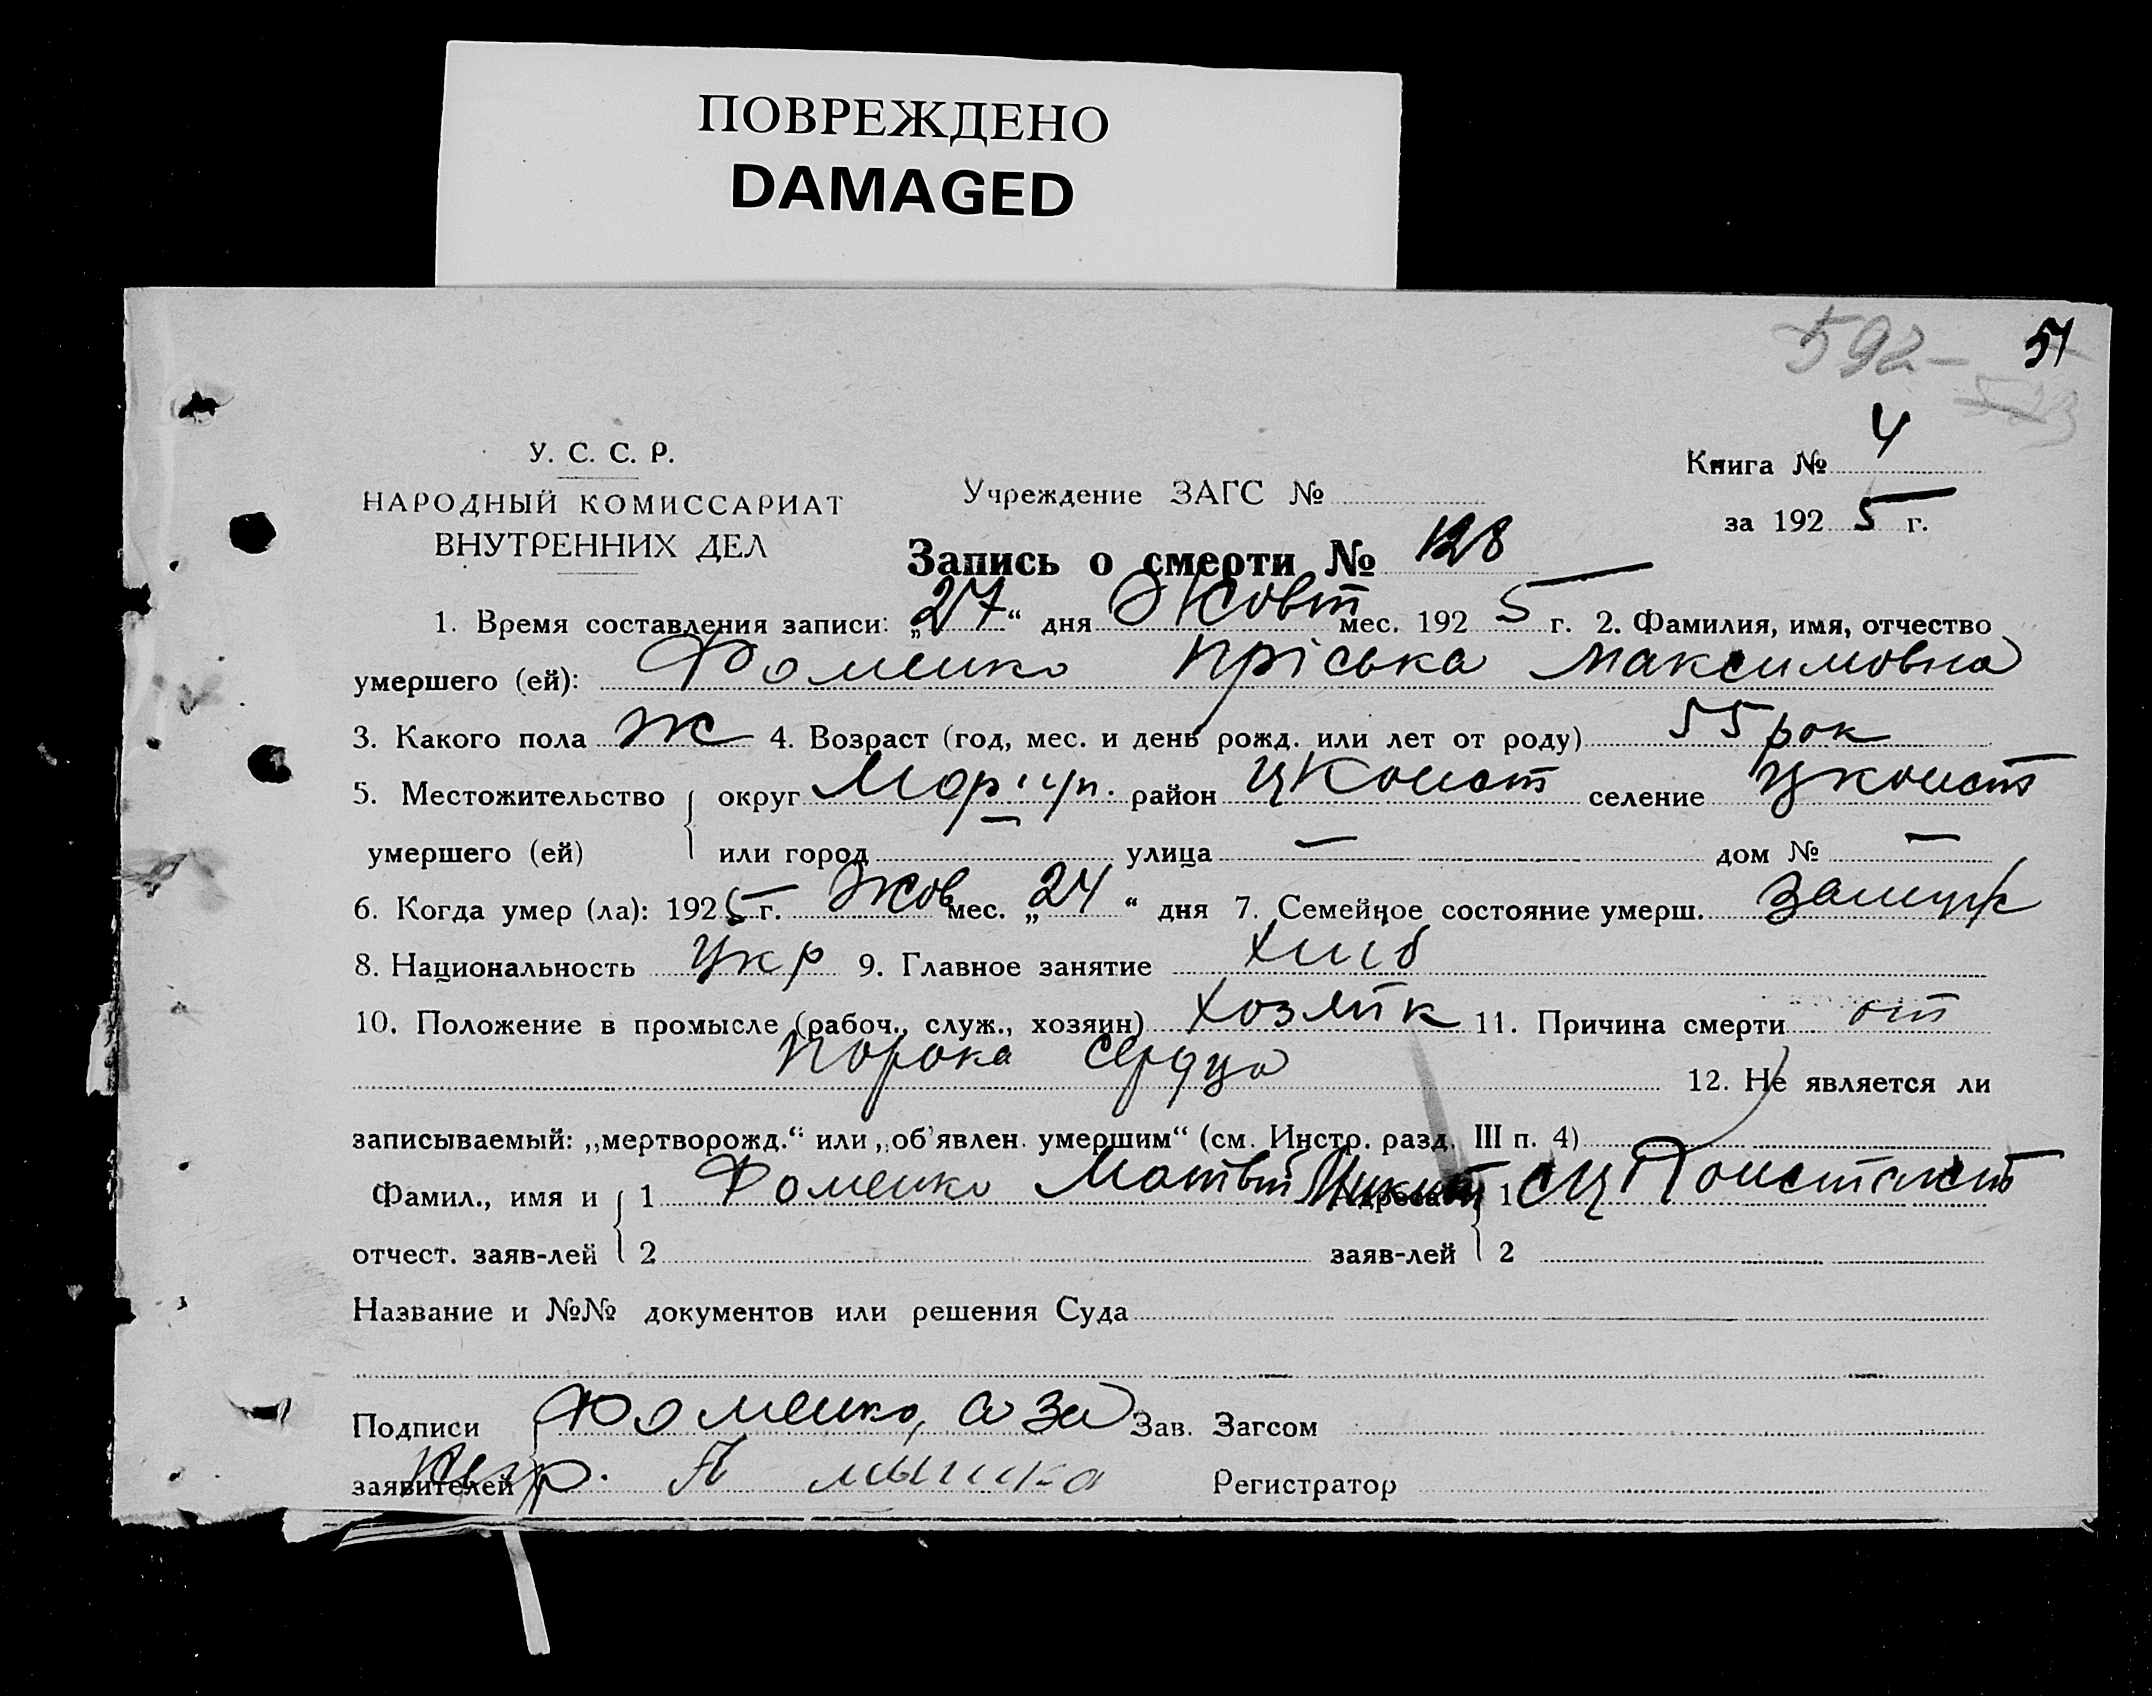 ПОВРЕЖДЕНО
DAMAGED
592- 51
У. С. С. Р.
НАРОДНЫЙ КОМИССАРИАТ
ВНУТРЕННИХ ДЕЛ
Учреждение ЗАГС №
Книга № 4
за 1925 г.
Запись о смерти № 128
1. Время составления записи: „27“ дня Жовт мес. 1925 г. 2. Фамилия, имя, отчество
умершего (ей): Фоменко Пріська Максимовна
3. Какого пола ж 4. Возраст (год, мес. и день рожд. или лет от роду) 55 рок
5. Местожительство округ Маріуп. район УКонст селение Уконст
умершего (ей) или город улица — дом № —
6. Когда умер (ла): 1925 г. Жов мес. „24“ дня 7. Семейное состояние умерш. замуж
8. Национальность Укр 9. Главное занятие хліб
10. Положение в промысле (рабоч., служ., хозяин) хозяйк 11. Причина смерти от
порока сердца 12. Не является ли
записываемый: „мертворожд.“ или „об'явлен. умершим“ (см. Инстр. разд. III п. 4)
Фамил., имя и 1 Фоменко Матвій Адреса 1
отчест. заяв-лей 2 заяв-лей 2
Название и №№ документов или решения Суда
Подписи Фоменко, а за Зав. Загсом
заявителей Регистратор